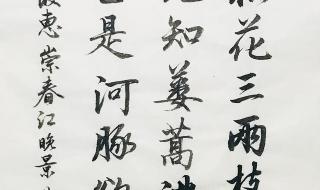 花三兩枝
知蔞蒿滿
是河豚欲
惠崇春江晚景